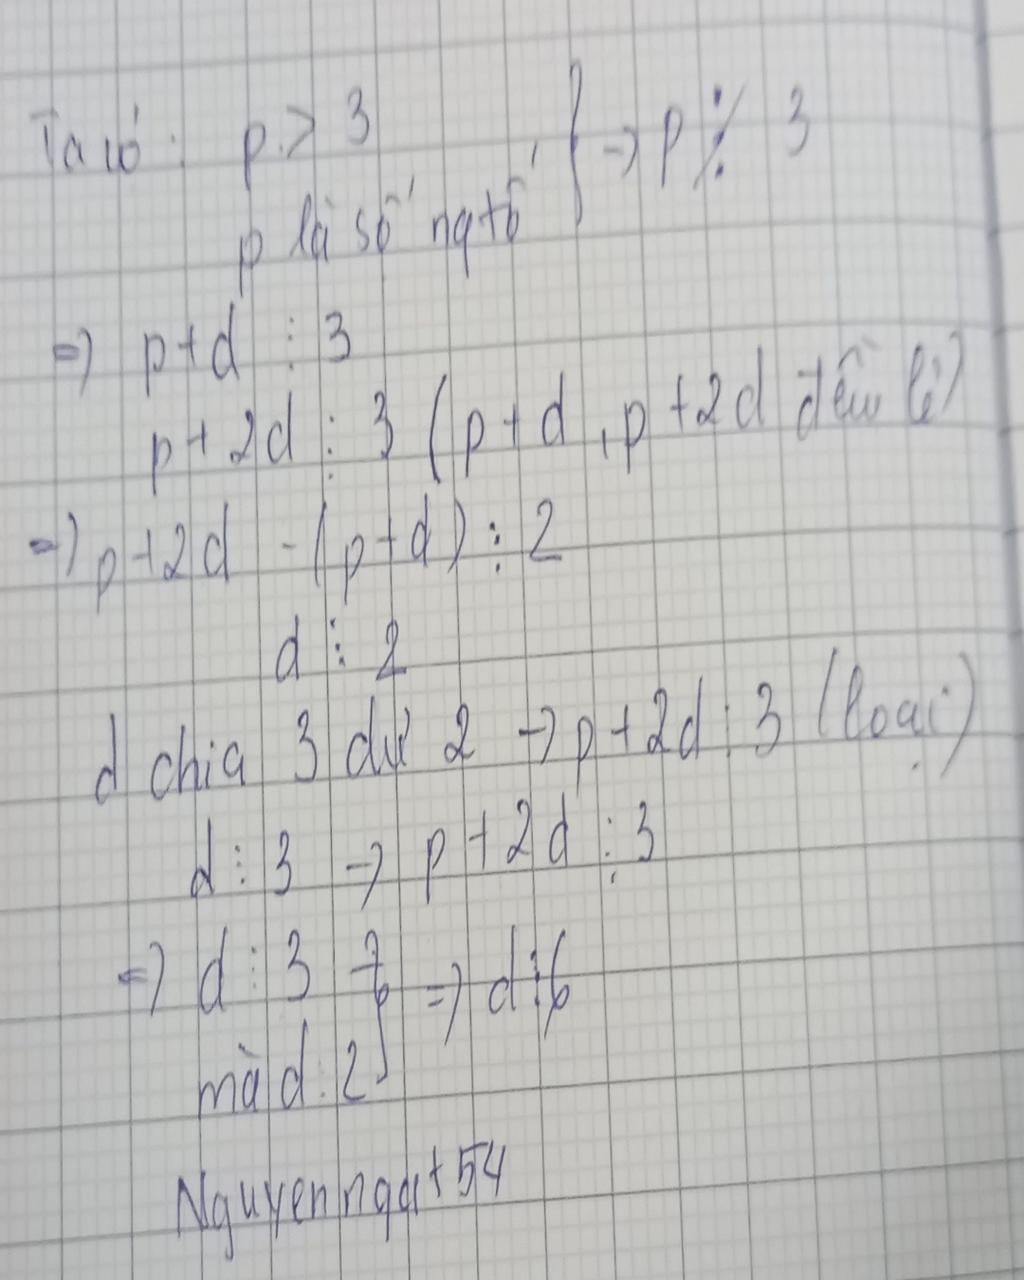 Ta có: p > 3 } → p ⋮̸ 3
p là số ngtố
=) p+d ⋮ 3
p+2d ⋮ 3 (p+d, p+2d đều lẻ)
=) p+2d - (p+d) ⋮ 2
d ⋮ 2
d chia 3 dư 2 → p+2d ⋮ 3 (loại)
d ⋮ 3 → p+2d ⋮ 3
=) d ⋮ 3 } =) d ⋮ 6
mà d ⋮ 2
Nguyenngat54